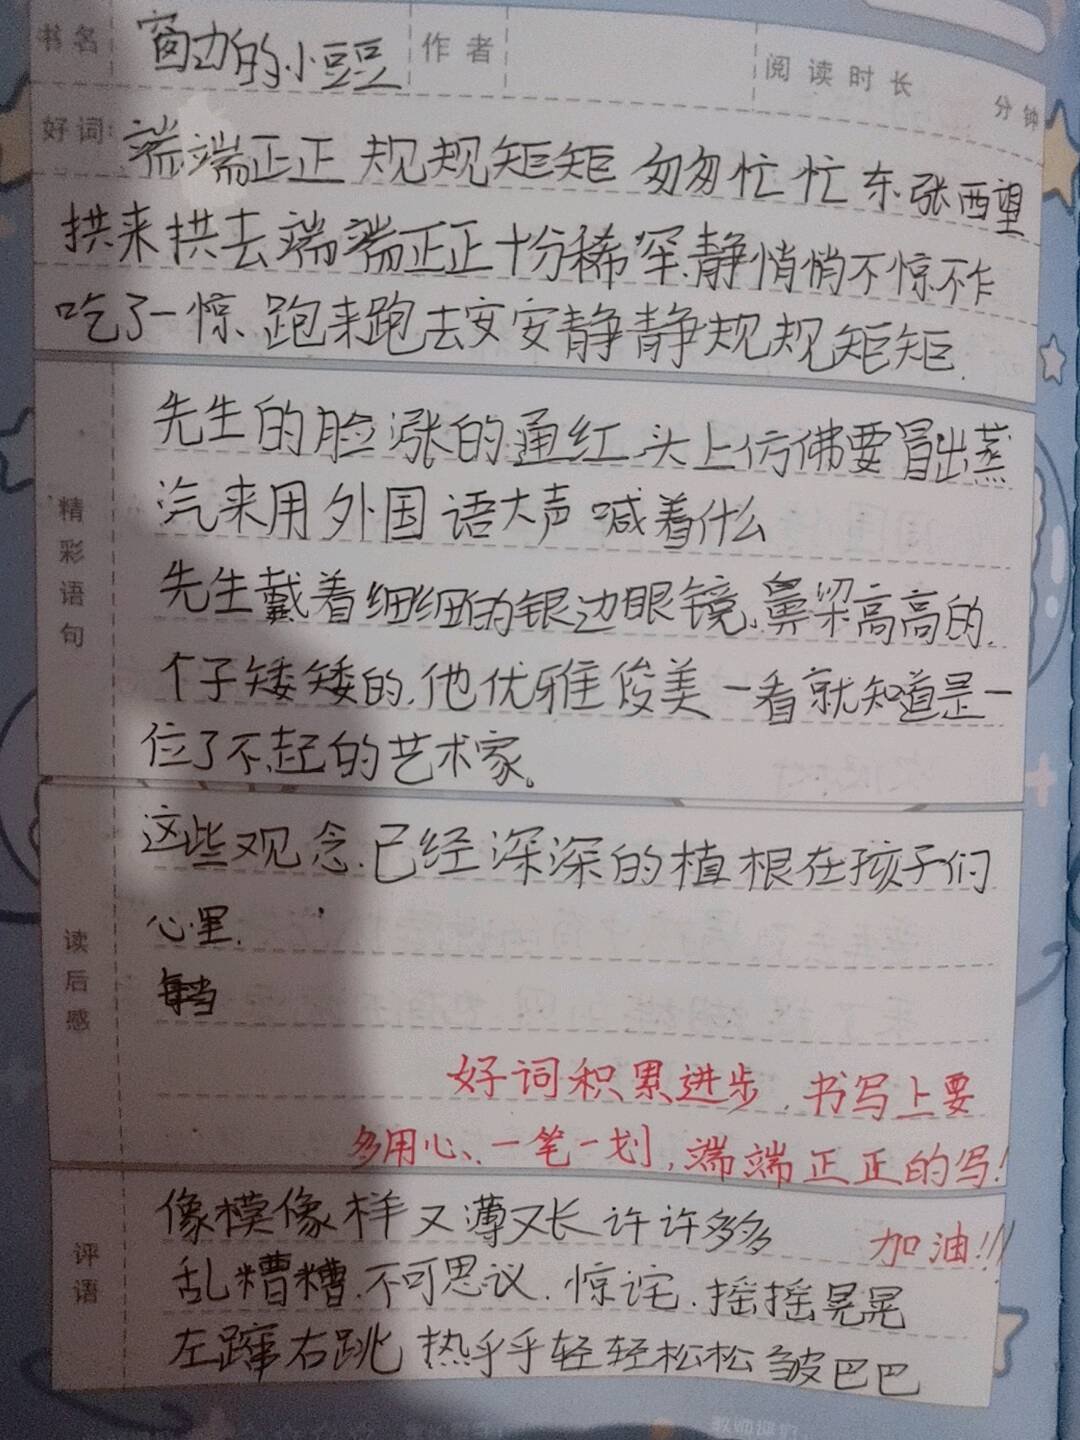 书名 窗边的小豆豆 作者 阅读时长 分钟
好词: 端端正正 规规矩矩 匆匆忙忙 东张西望
拱来拱去 端端正正 十分稀罕.静悄悄 不惊不乍
吃了一惊、跑来跑去 安安静静 规规矩矩.
精彩语句
先生的脸涨的通红 头上仿佛要冒出蒸
汽来用外国语大声喊着什么
先生戴着细细的银边眼镜、鼻梁高高的.
个子矮矮的.他优雅俊美 一看就知道是一
位了不起的艺术家。
读后感
这些观念.已经深深的植根在孩子们
心里.
每当
好词积累进步,书写上要
多用心、一笔一划,端端正正的写!
加油!!!
评语
像模像样 又薄又长 许许多多
乱糟糟.不可思议.惊诧.摇摇晃晃
左蹿右跳 热乎乎 轻轻松松 皱巴巴